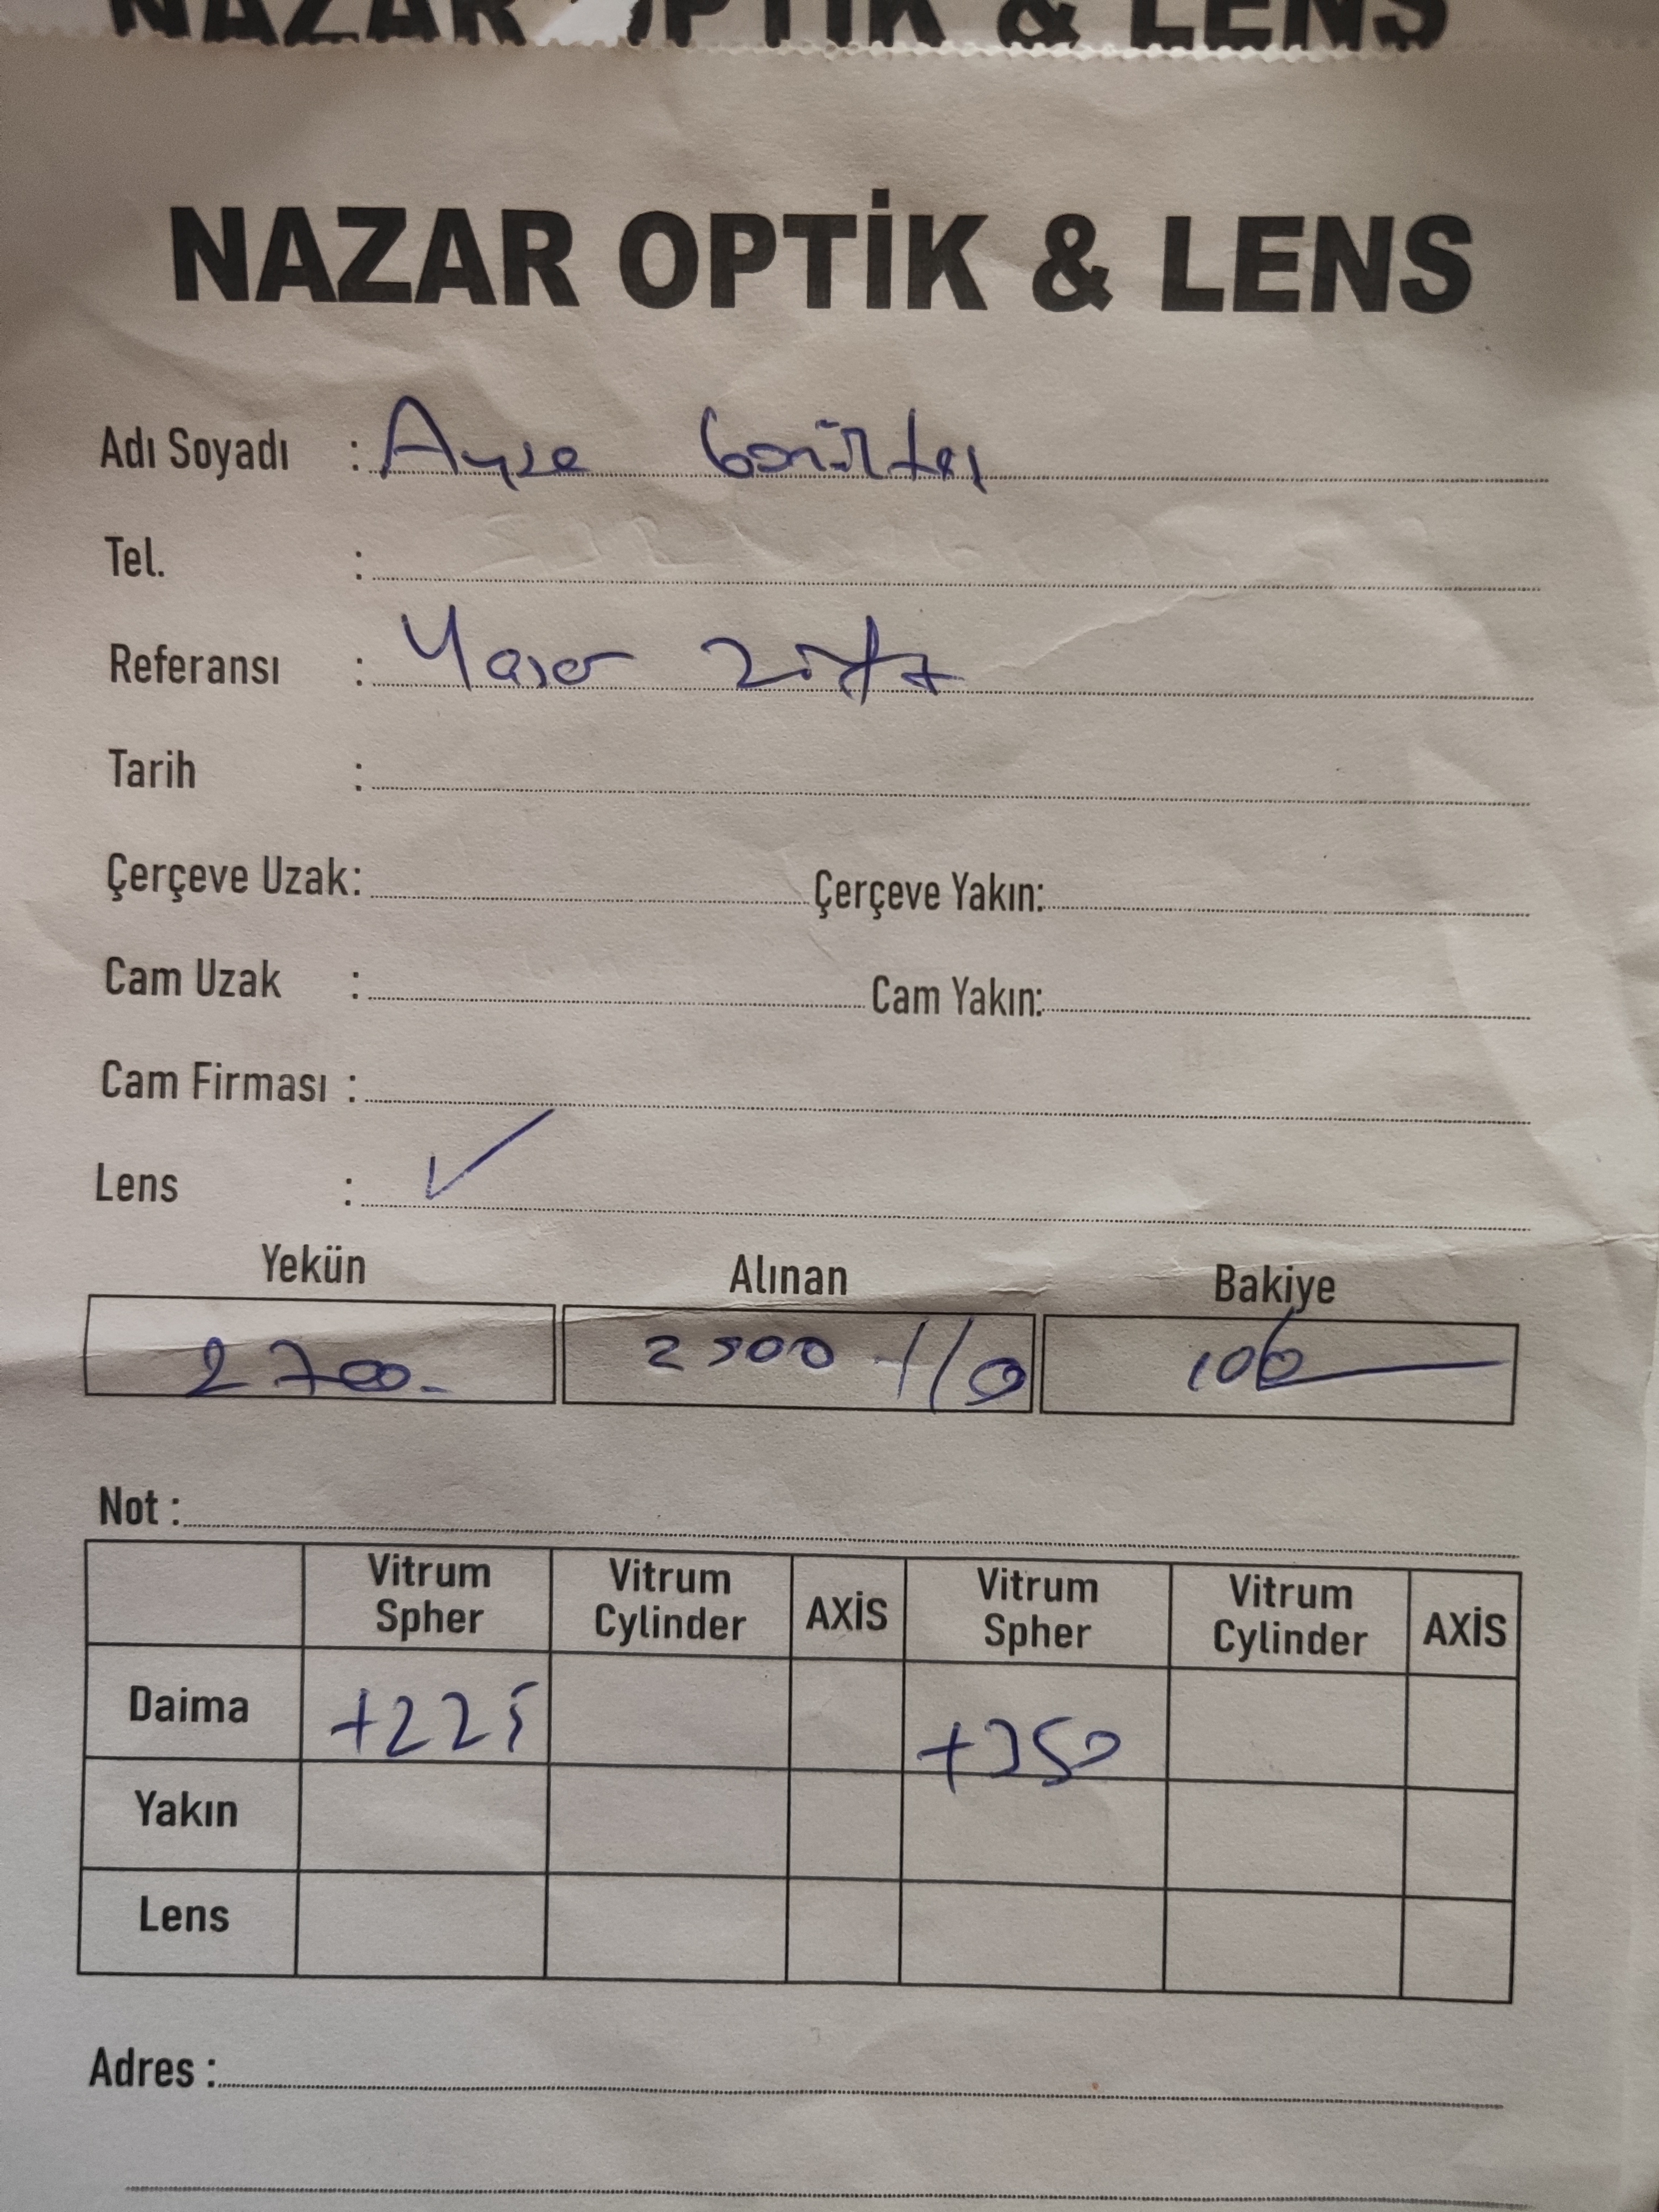 NAZAR OPTİK & LENS
NAZAR OPTİK & LENS
Adı Soyadı : Ayşe
Tel. :
Referansı : Yaşar
Tarih :
Çerçeve Uzak: Çerçeve Yakın:
Cam Uzak : Cam Yakın:
Cam Firması :
Lens : ✓
Yekün Alınan Bakiye
2700.- 100
Not :
Vitrum Spher Vitrum Cylinder AXİS Vitrum Spher Vitrum Cylinder AXİS
Daima +225 +250
Yakın
Lens
Adres :